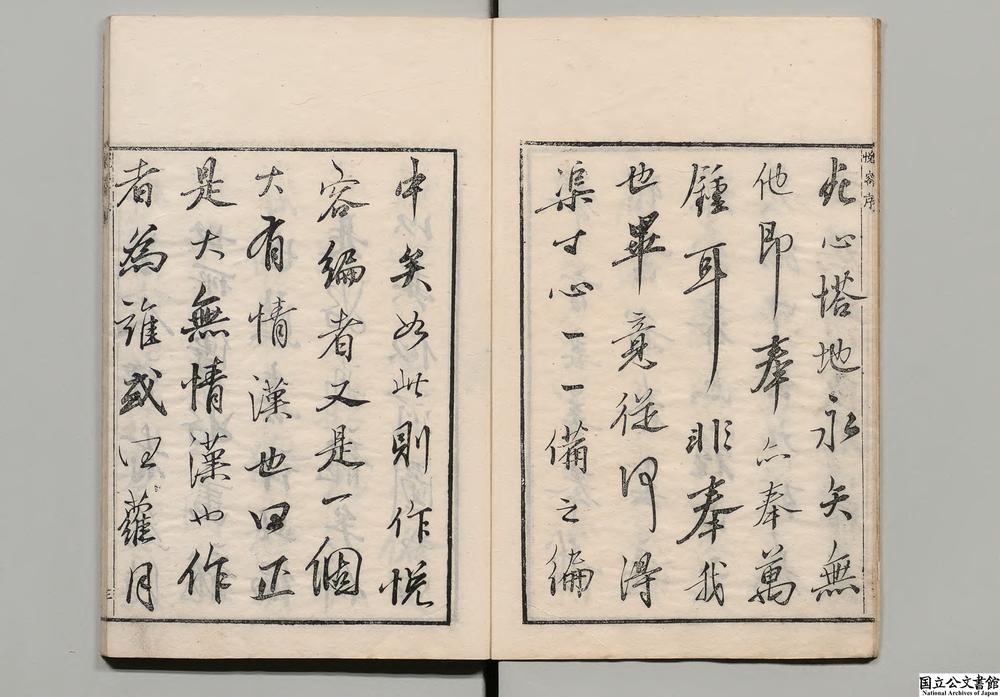 悦容序
死心塔地永矢無
他即奉亦奉萬
鍾耳非奉我
也畢竟從何得
渠寸心一一備之編
中矣如此則作悦
容編者又是一個
大有情漢也曰正
是大無情漢也作
者為誰或曰蘿月
三
国立公文書館
National Archives of Japan